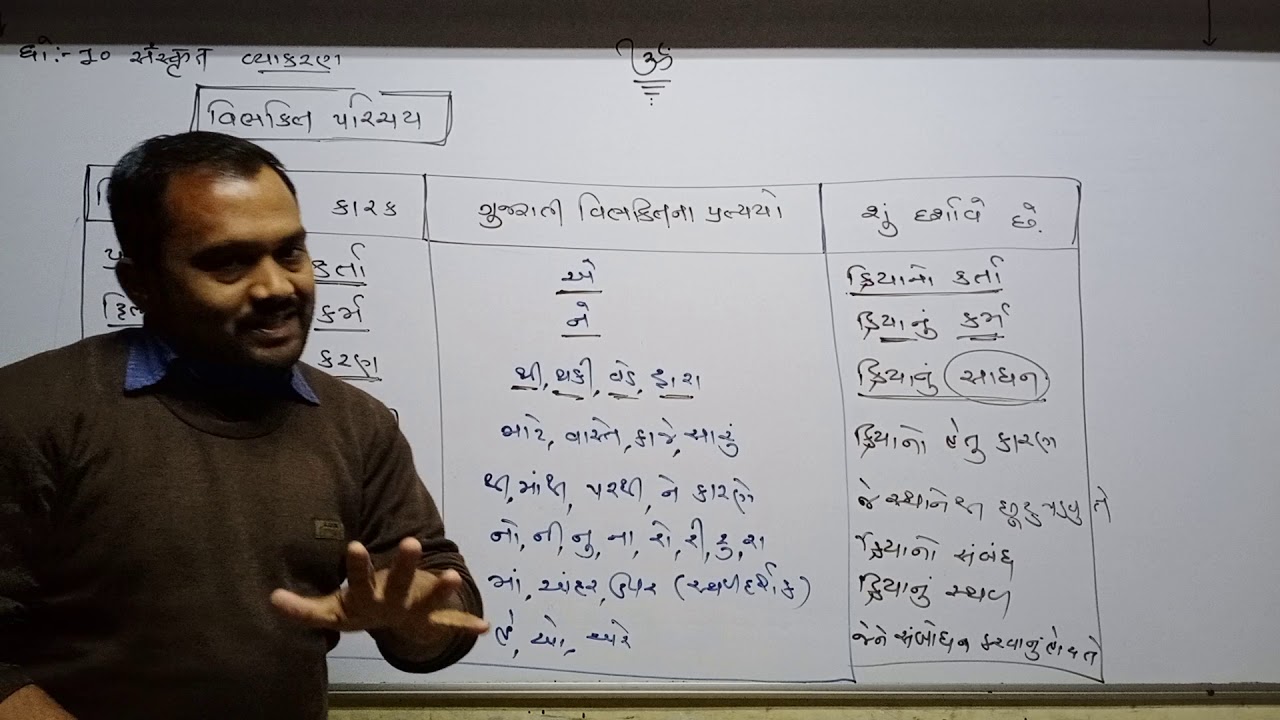 ધો:- ૧૦ સંસ્કૃત વ્યાકરણ
ૐ
વિભક્તિ પરિચય
કારક ગુજરાતી વિભક્તિના પ્રત્યયો શું દર્શાવે છે.
કર્તા એ ક્રિયાનો કર્તા
કર્મ ને ક્રિયાનું કર્મ
કરણ થી, થકી, વડે, દ્વારા ક્રિયાનું સાધન
માટે, વાસ્તે, કાજે, સારું ક્રિયાનો હેતુ કારણ
થી, માંથી, પરથી, ને કારણે જે સ્થાનેથી છૂટુ પડવુ તે
નો, ની, નુ, ના, રો, રી, રુ, રા ક્રિયાનો સંબંધ
માં, અંદર, ઉપર (સ્થળદર્શક) ક્રિયાનું સ્થળ
હે, ઓ, અરે જેને સંબોધન કરવાનું હોય તે